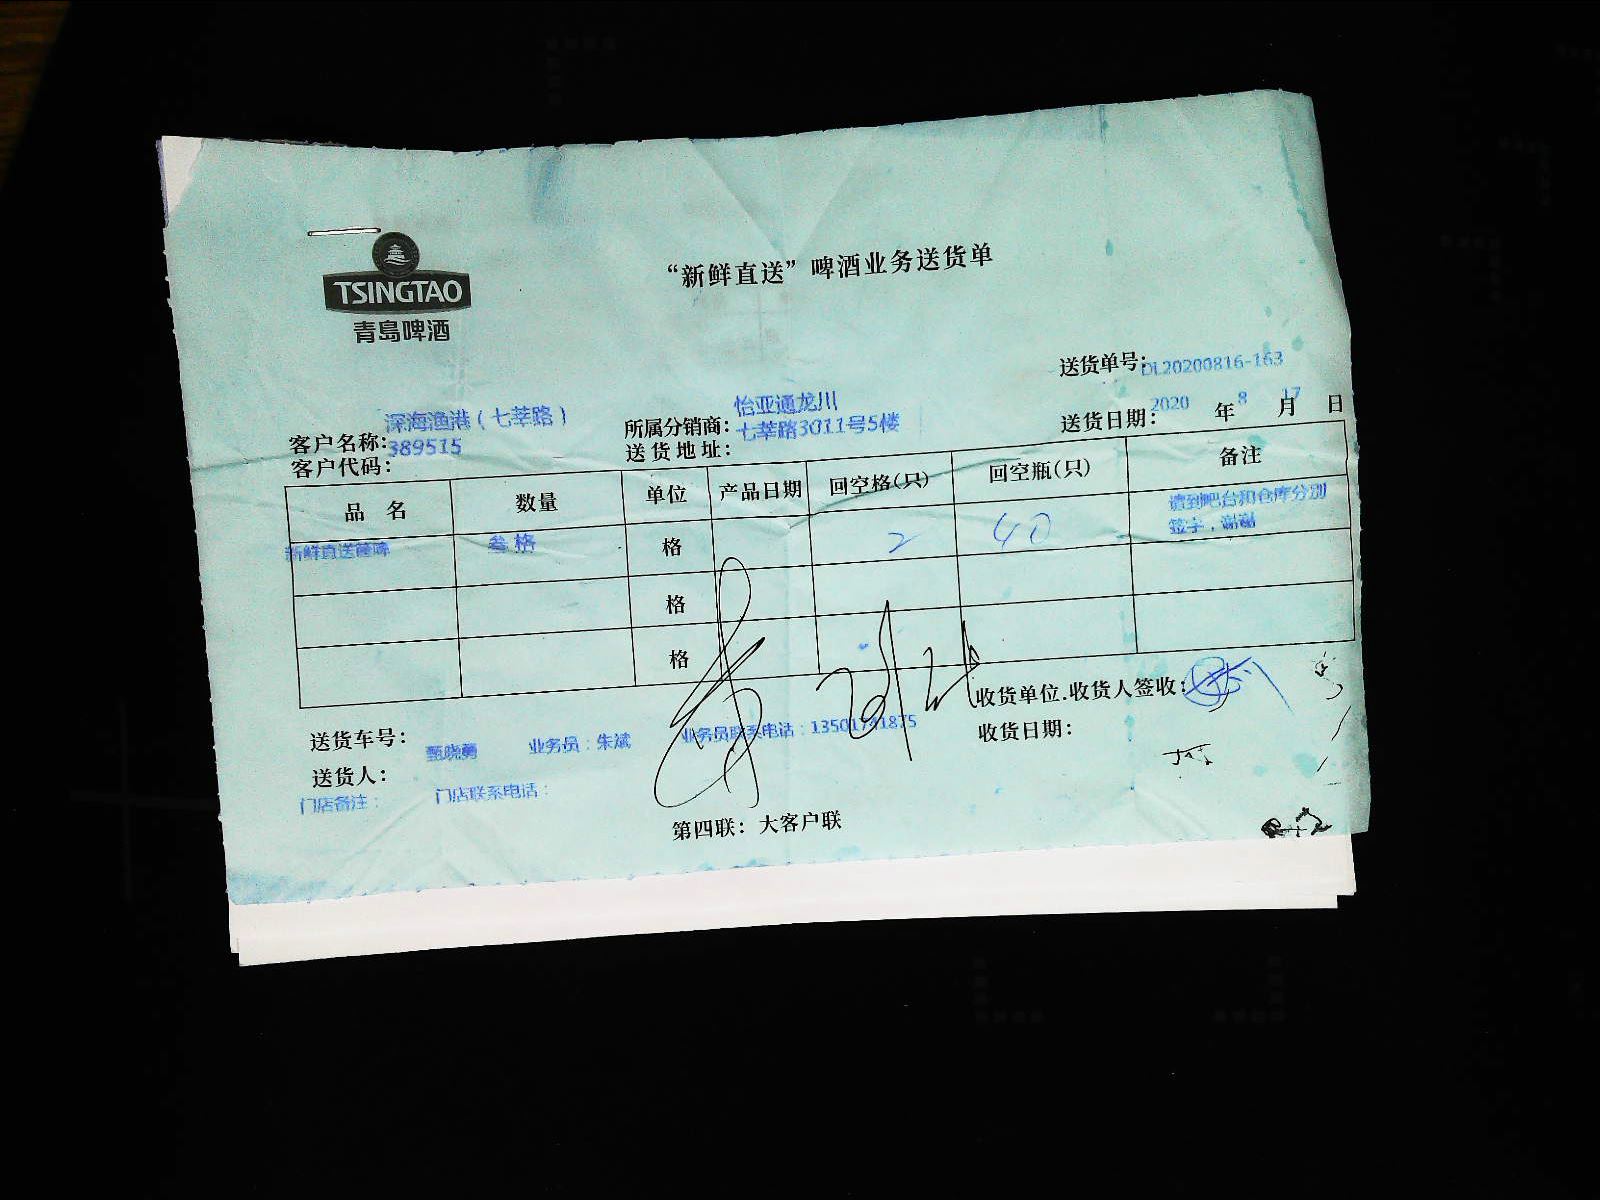 TSINGTAO
青岛啤酒
“新鲜直送”啤酒业务送货单
送货单号:DL20200816-163
送货日期:2020年8月17日
客户名称:深海渔港(七莘路)
所属分销商:怡亚通龙川
客户代码:389515
送货地址:七莘路3011号5楼
品名 数量 单位 产品日期 回空格(只) 回空瓶(只) 备注
新鲜直送 叁格 格 2 40 请到吧台和仓库分别签字,谢谢
格
格
收货单位.收货人签收:
收货日期:
送货车号:
送货人:甄晓勇 业务员:朱斌 业务员联系电话:13501741875
门店备注: 门店联系电话:
第四联:大客户联